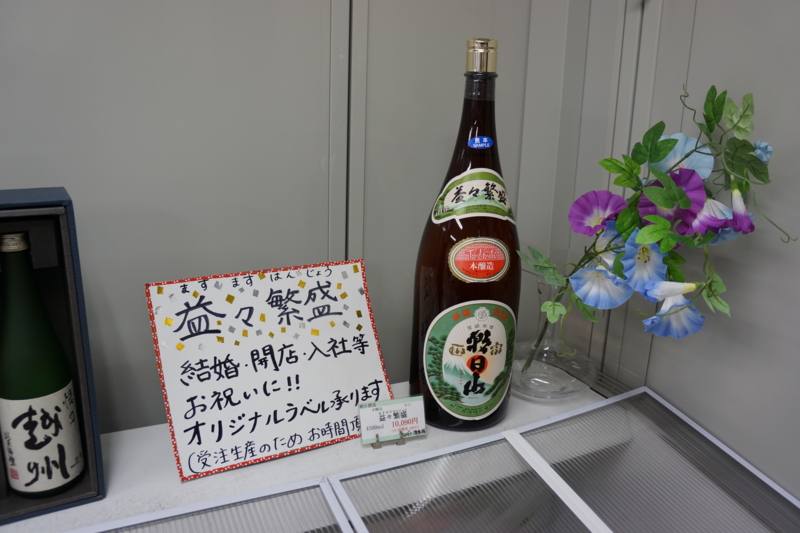 ます ます はん じょう
益々繁盛
結婚・開店・入社等
お祝いに!!
オリジナルラベル承ります
(受注生産のため お時間頂
見本
SAMPLE
益々繁盛
本醸造
朝日山
益々繁盛
4500ml
10,090円
越州